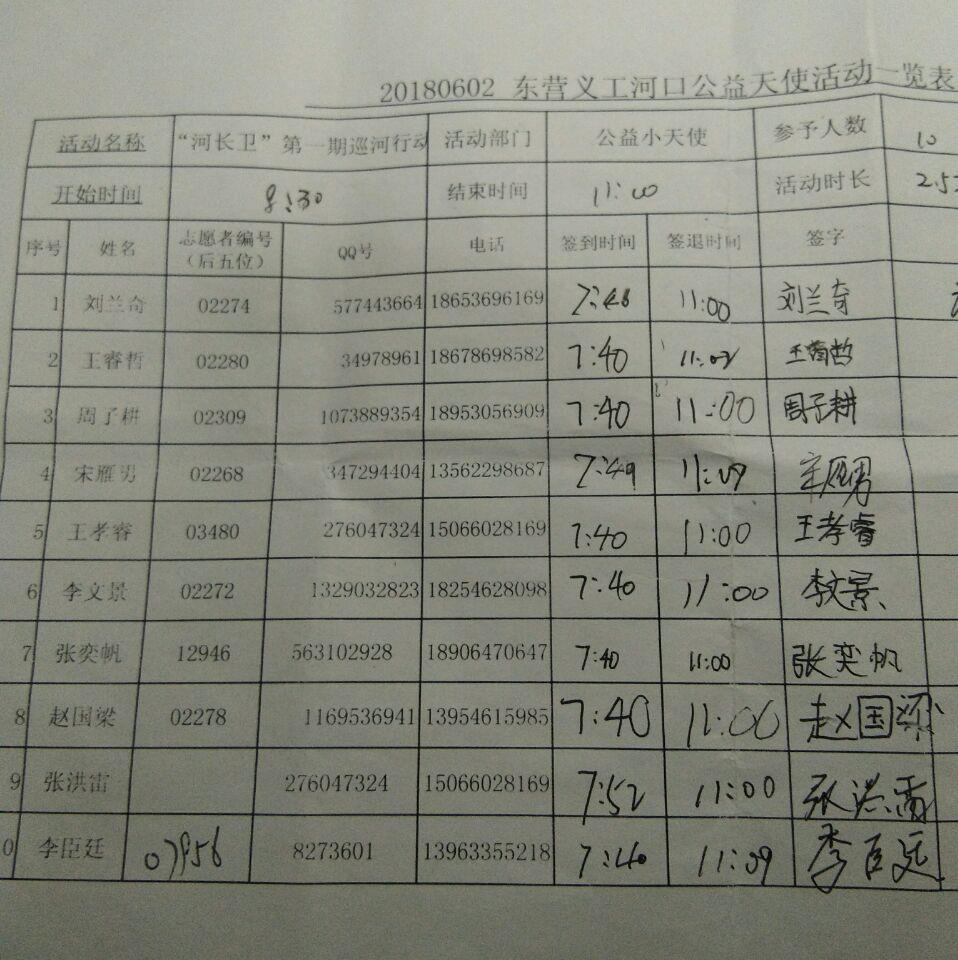 20180602 东营义工河口公益天使活动一览表
活动名称 “河长卫”第一期巡河行动 活动部门 公益小天使 参予人数 10
开始时间 8:30 结束时间 11:00 活动时长 2.5
序号 姓名 志愿者编号（后五位） QQ号 电话 签到时间 签退时间 签字
1 刘兰奇 02274 577443664 18653696169 7:48 11:00 刘兰奇
2 王睿哲 02280 34978961 18678698582 7:40 王睿哲
3 周子耕 02309 1073889354 18953056909 7:40 11:00 周子耕
4 宋雁男 02268 347294404 13562298687 7:49 11:09 宋雁男
5 王孝睿 03480 276047324 15066028169 7:40 11:00 王孝睿
6 李文景 02272 1329032823 18254628098 7:40 11:00 李文景
7 张奕帆 12946 563102928 18906470647 7:40 11:00 张奕帆
8 赵国梁 02278 1169536941 13954615985 7:40 11:00 赵国梁
9 张洪雷 276047324 15066028169 7:52 11:00 张洪雷
0 李臣廷 07956 8273601 13963355218 7:40 11:09 李臣廷